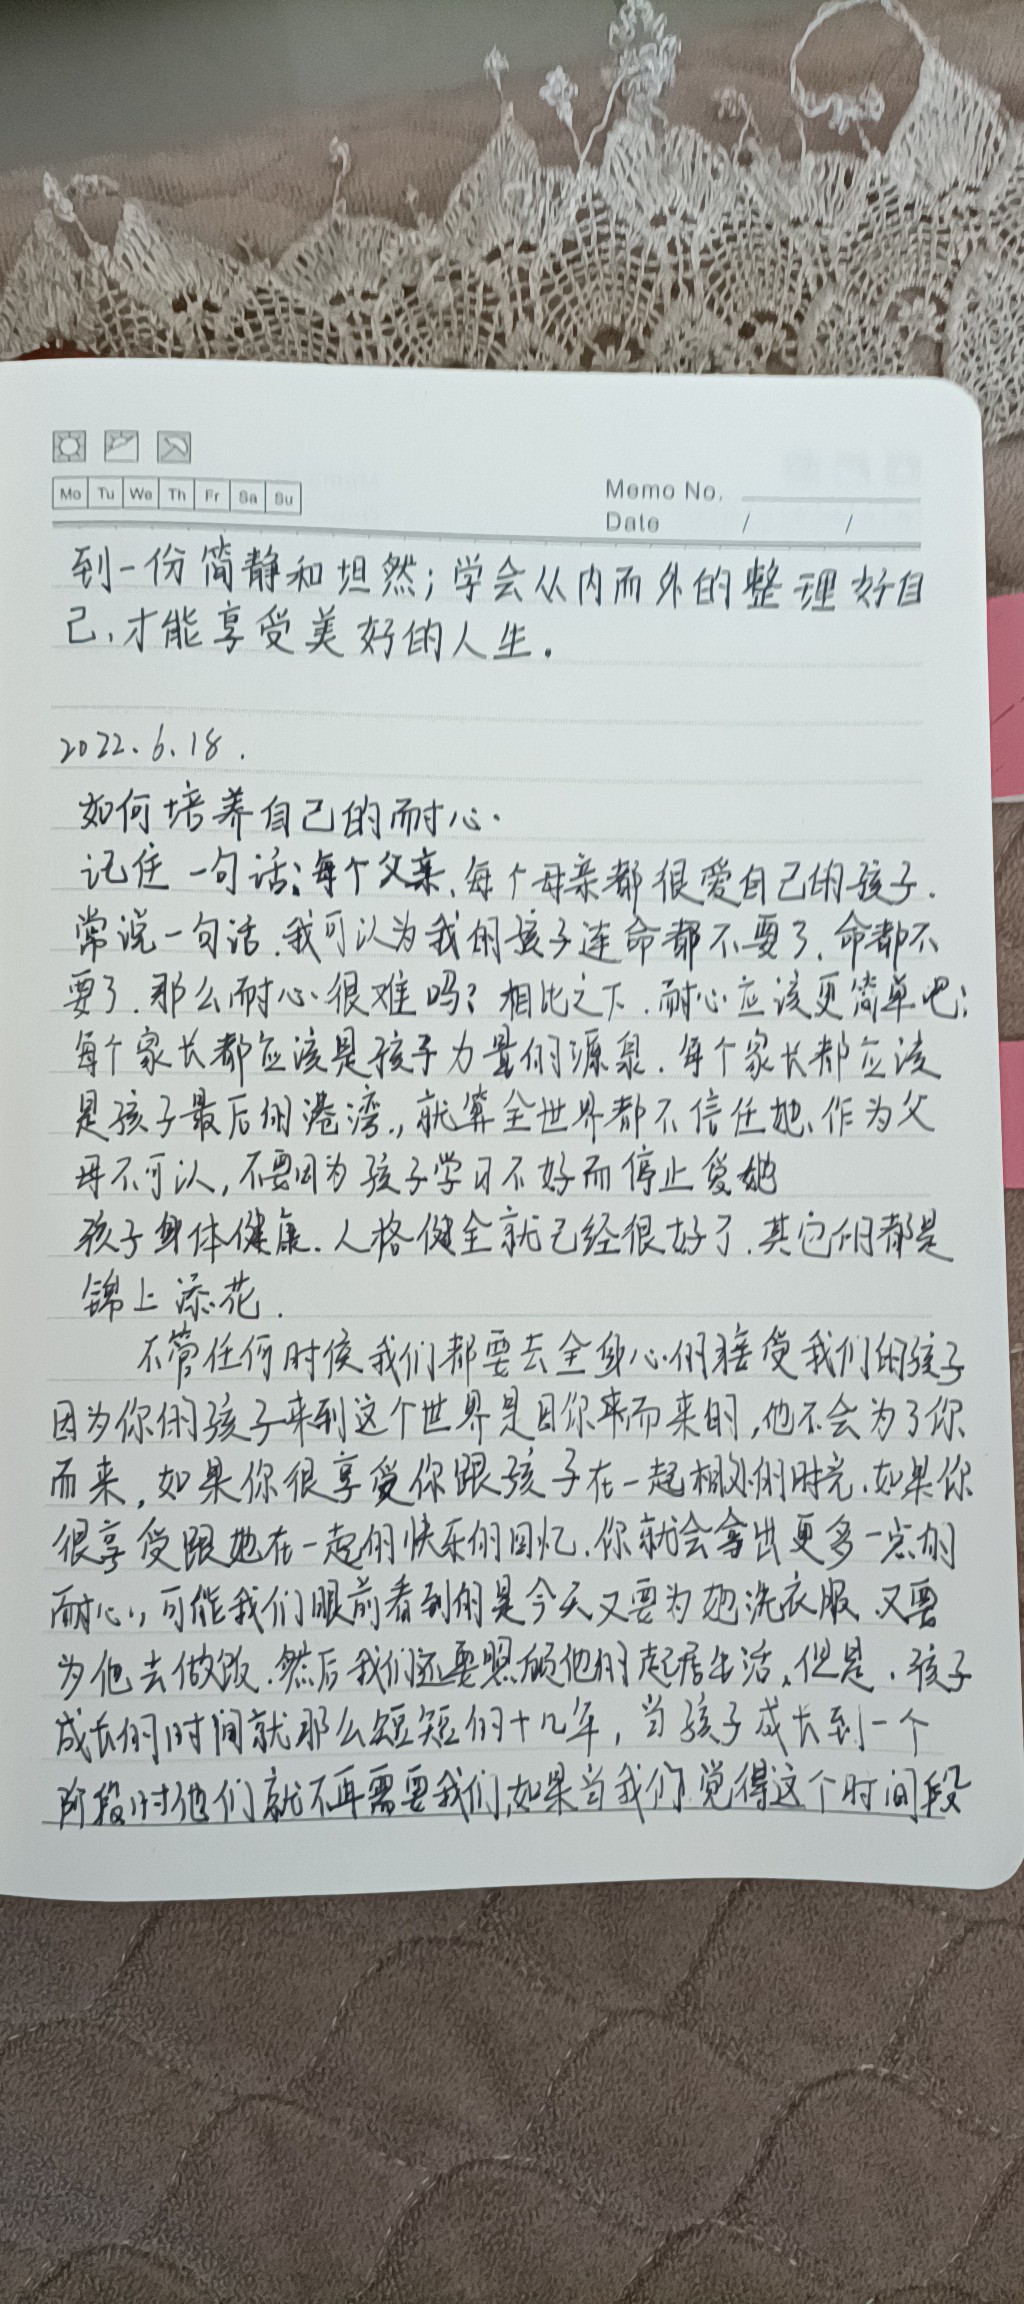 Mo Tu We Th Fr Sa Su
Memo No.
Date / /
到一份简静和坦然；学会从内而外的整理好自
己、才能享受美好的人生.
2022、6、18.
如何培养自己的耐心.
记住一句话：每个父亲、每个母亲都很爱自己的孩子.
常说一句话.我可以为我的孩子连命都不要了.命都不
要了.那么耐心很难吗？相比之下.耐心应该更简单吧；
每个家长都应该是孩子力量的源泉.每个家长都应该
是孩子最后的港湾.，就算全世界都不信任她、作为父
母不可以，不要因为孩子学习不好而停止爱她
孩子身体健康.人格健全就已经很好了.其它的都是
锦上添花.
不管任何时侯我们都要去全身心的接受我们的孩子
因为你的孩子来到这个世界是因你来而来的,他不会为了你
而来，如果你很享受你跟孩子在一起相处的时光.如果你
很享受跟她在一起的快乐的回忆.你就会拿出更多一点的
耐心，可能我们眼前看到的是今天又要为她洗衣服、又要
为他去做饭.然后我们还要照顾他的起居生活,但是.孩子
成长的时间就那么短短的十几年，当孩子成长到一个
阶段时他们就不再需要我们,如果当我们觉得这个时间段